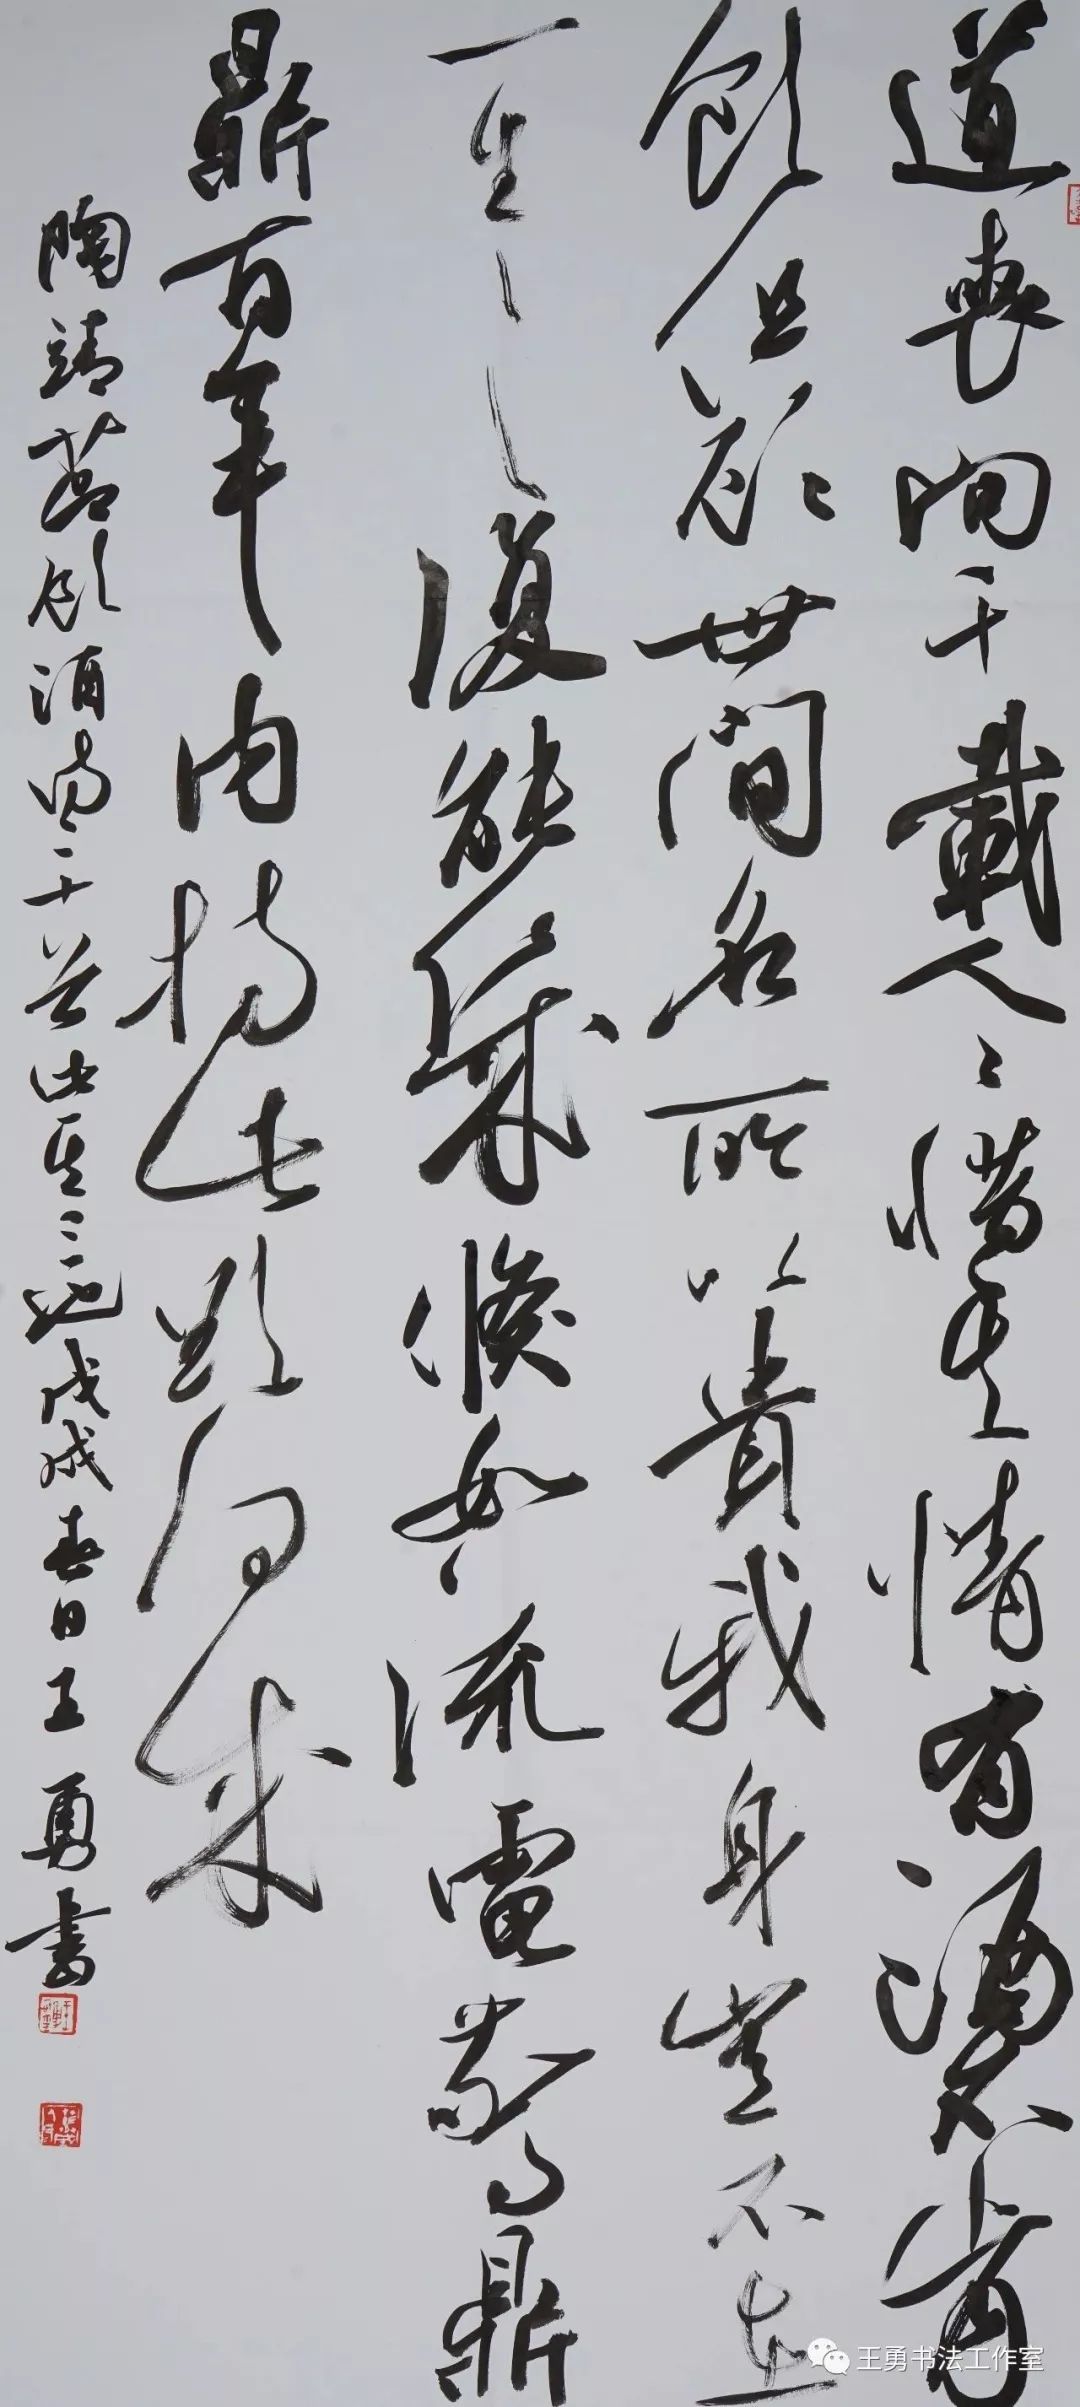 道喪向千載人々惜其情有酒不肯
飲但顧世間名所以貴我身豈不在
一生々々復能幾倏如流電驚鼎
鼎百年內持此欲何成
陶靖節飲酒詩二十首此其三也戊戌春日王勇書
王勇书法工作室